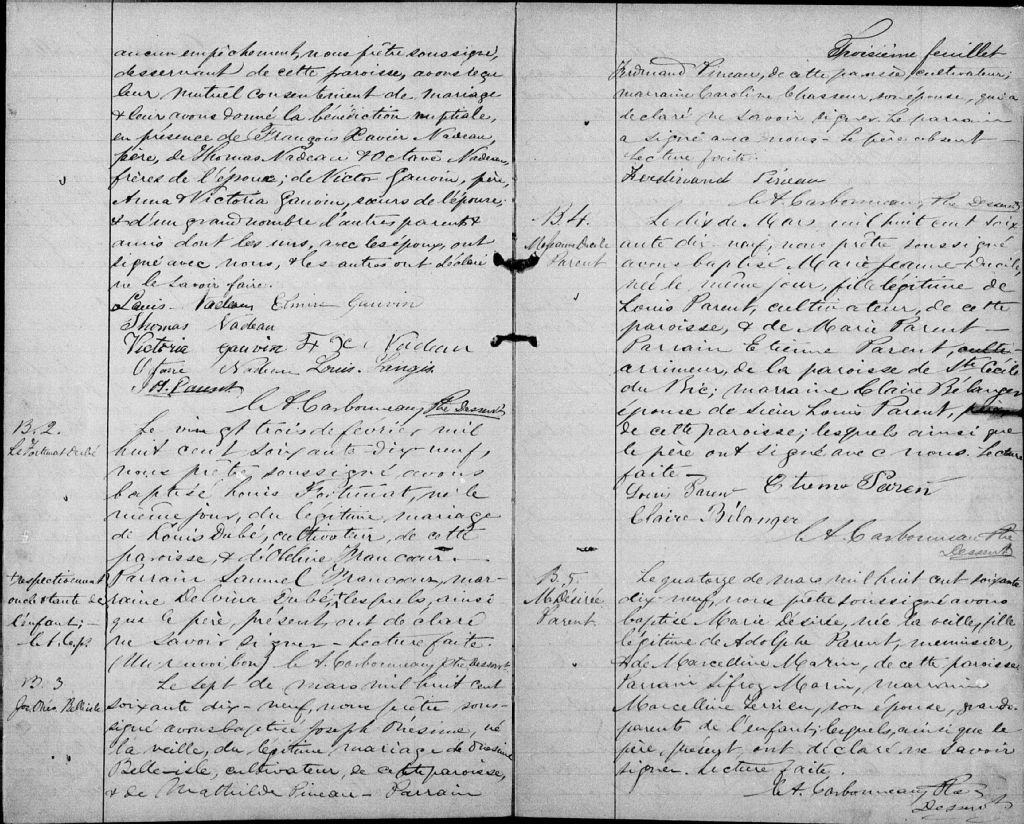 aucun empêchement, nous prêtre soussigné,
desservant de cette paroisse, avons reçu
leur mutuel consentement de mariage
& leur avons donné la bénédiction nuptiale,
en présence de François Xavier Nadeau,
père, de Thomas Nadeau & Octave Nadeau,
frères de l'époux; de Victor Gauvin, père,
Anna & Victoria Gauvin, sœurs de l'épouse;
& d'un grand nombre d'autres parents &
amis dont les uns, avec les époux, ont
signé avec nous, & les autres ont déclaré
ne le savoir faire.
Louis Nadeau Gauvin
Thomas Nadeau
Victoria Gauvin F. X. Nadeau
Nadeau Louis Langis
Parent
A. Carbonneau, Ptre Desservt
B. 2.
Ls Fortunat Dubé
Le vingt trois de fevrier, mil
huit cent soixante-dix-neuf,
nous prêtre soussigné avons
baptisé Louis Fortunat, né le
même jour, du légitime mariage
de Louis Dubé, cultivateur, de cette
paroisse, & d'Adeline
Parrain Samuel mar-
raine Delvina Dubé, + lesquels, ainsi
que le père, présent, ont declaré
ne savoir signer. Lecture faite.
(Un renvoi bon) A. Carbonneau, Ptre Desservt
+ respectivement
oncle & tante de
l'enfant; -
B. 3
Jos. Onés. Bellisle
Le sept de mars mil huit cent
soixante dix-neuf, nous prêtre sous-
signé avons baptisé Joseph Onésime, né
la veille, du légitime mariage de Onésime
Belle-isle, cultivateur, de cette paroisse,
& de Mathilde Pineau - Parrain
Troisième feuillet
Ferdinand Pineau, de cette paroisse, cultivateur;
marraine Caroline Chasseur, son épouse, qui a
declaré ne savoir signer. Le parrain
a signé avec nous - Le père absent -
Lecture faite.
Ferdinand Pineau
A. Carbonneau, Ptre Desservt
B. 4.
Parent
Le dix de Mars, mil huit cent soix-
ante dix-neuf, nous prêtre soussigné
avons baptisé Marie Jeanne
née le même jour, fille légitime de
Louis Parent, cultivateur, de cette
paroisse, & de Marie Parent -
Parrain Etienne Parent,
arrimeur, de la paroisse de Ste Cécile
du Bic; marraine Claire Bélanger
épouse de Sieur Louis Parent,
de cette paroisse; lesquels ainsi que
le père ont signé avec nous. Lecture
faite -
Louis Parent
Claire Bélanger
A. Carbonneau Ptre
Desservt
B. 5.
M. Désirée
Parent
Le quatorze de mars mil huit cent soixante
dix-neuf, nous prêtre soussigné avons
baptisé Marie Désirée, née la veille, fille
légitime de Adolphe Parent, menuisier,
& de Marcelline Marin, de cette paroisse
Parrain Marin, marraine
Marcelline son épouse, grands-
parents de l'enfant; lesquels, ainsi que le
père, présent ont déclaré ne savoir
signer. Lecture faite.
A. Carbonneau, Ptre
Desservt